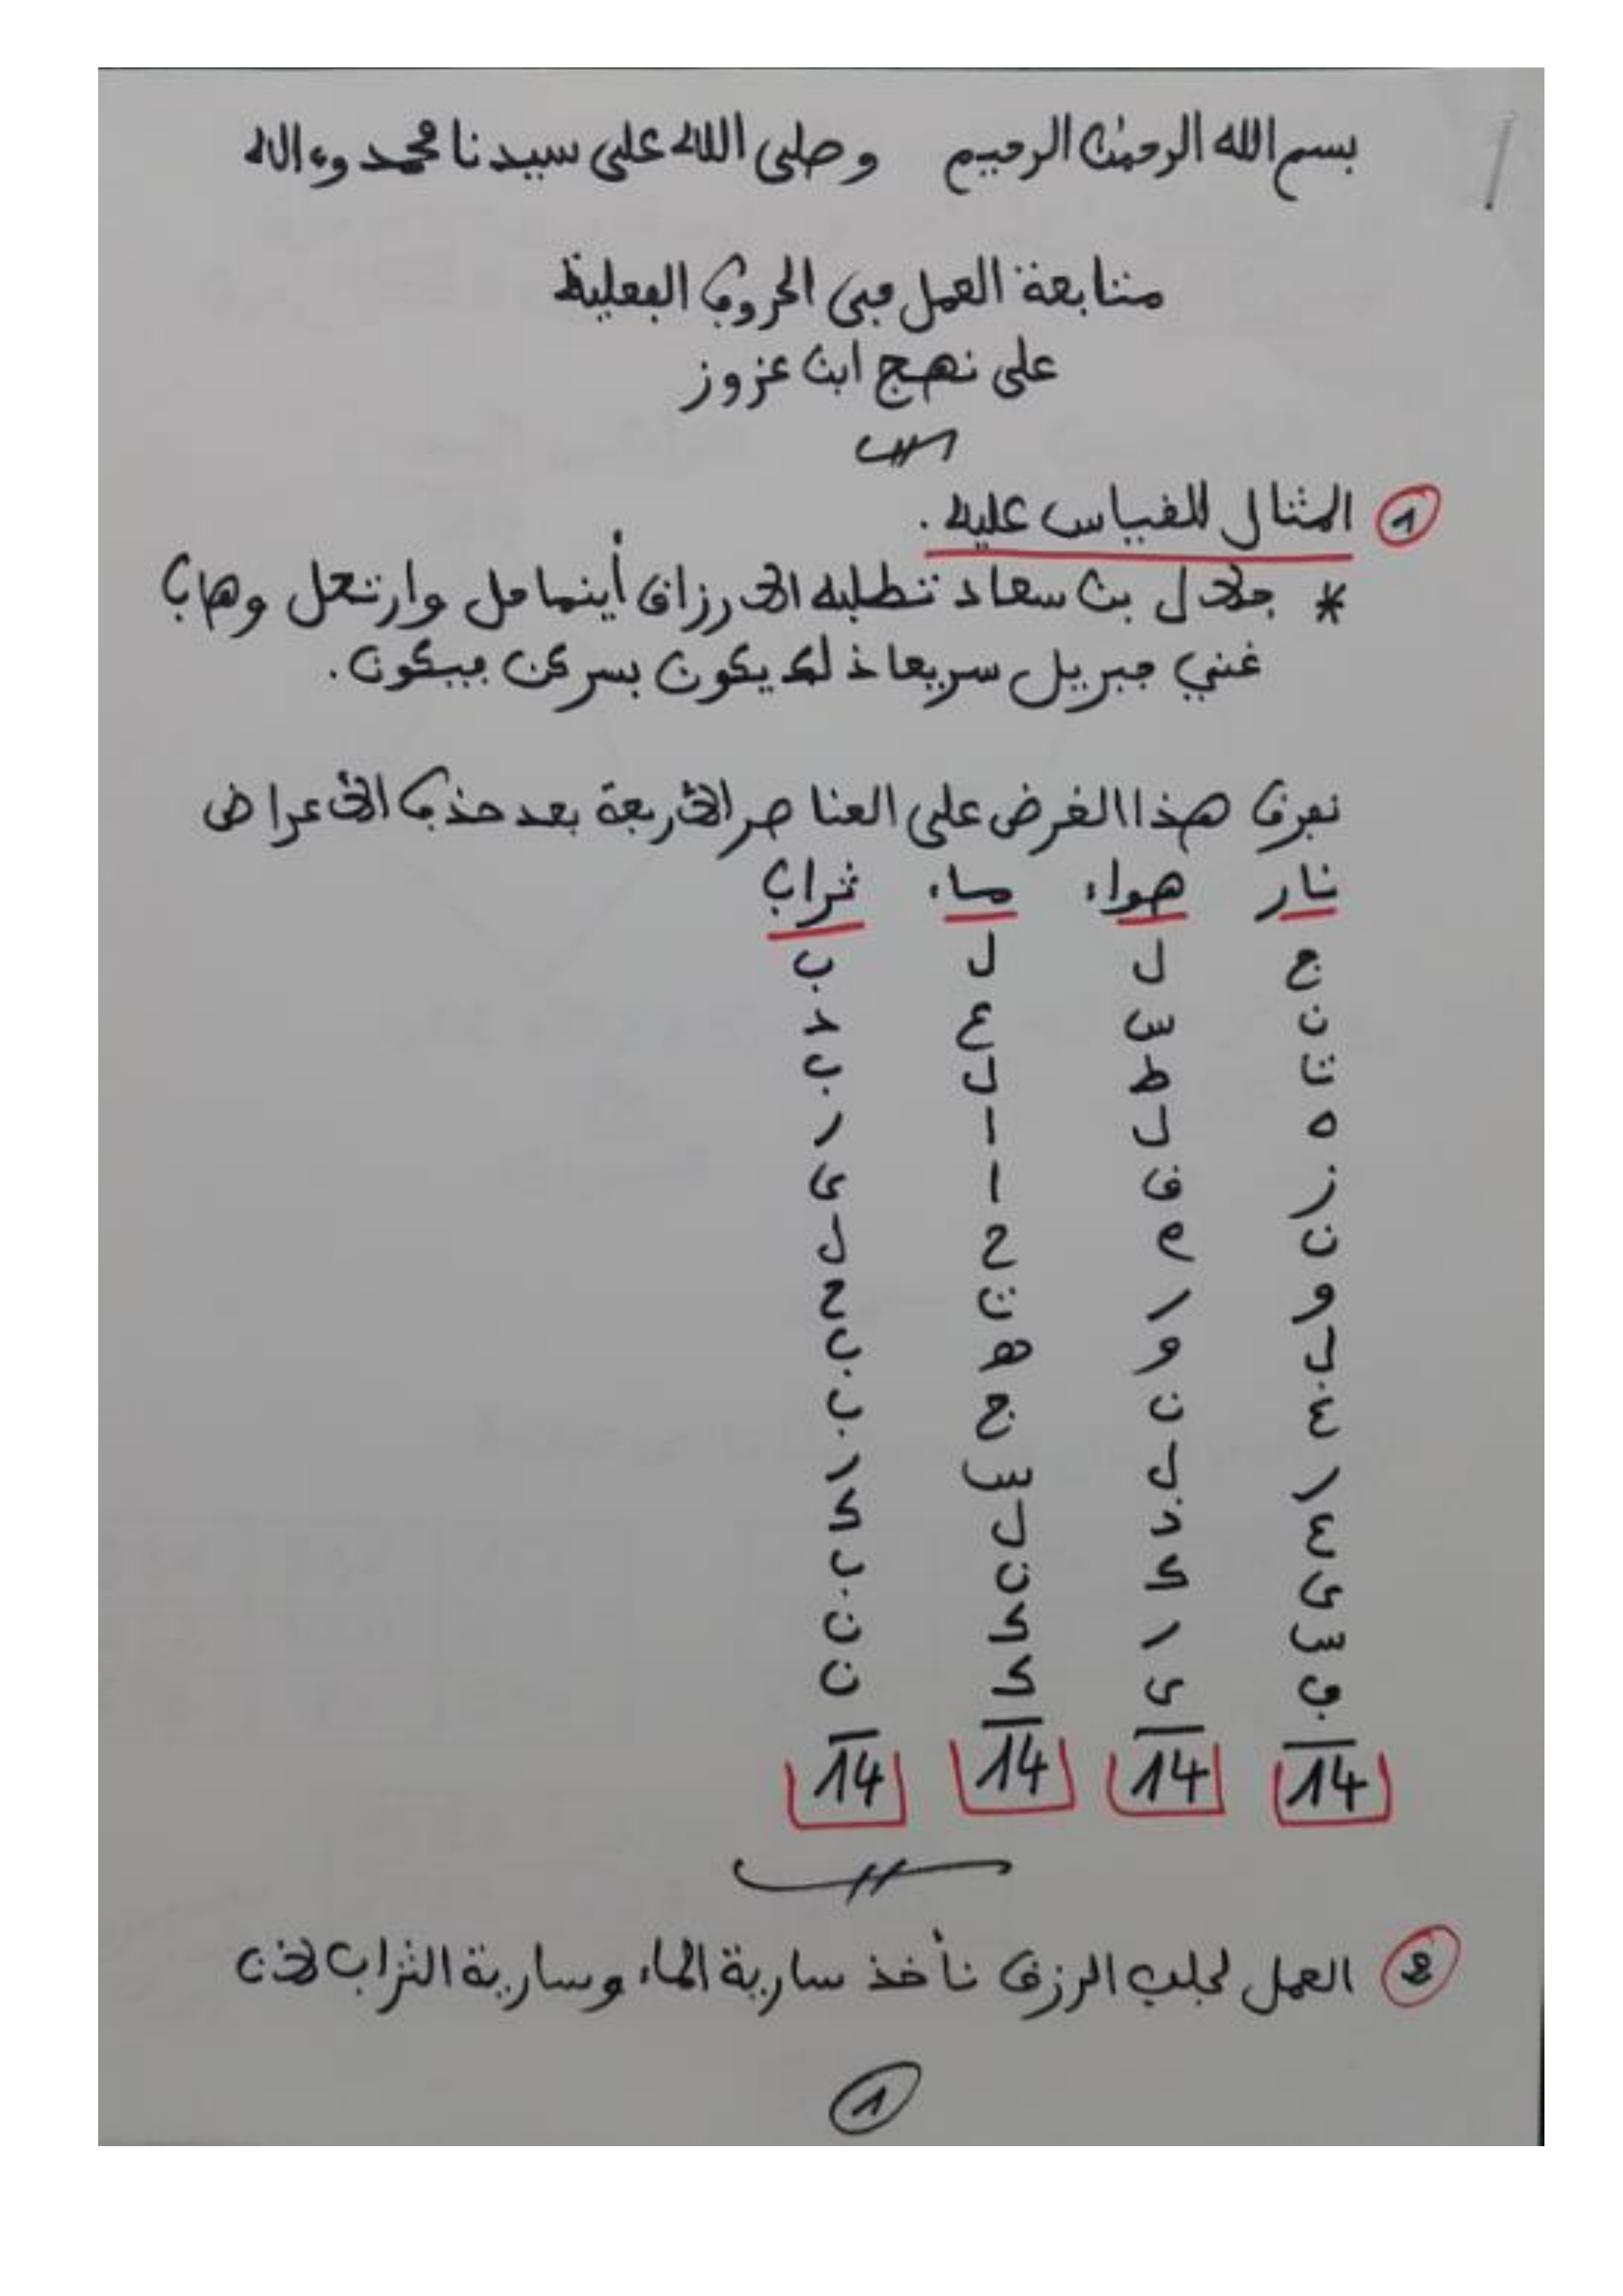 بسم الله الرحمن الرحيم وصلى الله على سيدنا محمد وءاله
متابعة العمل في الحروف الفعلية
على نهج ابن عزوز
1 المثال للقياس عليه.
* جلال بن سعاد تطلبه الأرزاق أينما حل وارتحل وهاب
غني جبريل سريعا ذلك يكون بسر كن فيكون.
نفرق هذا الغرض على العناصر الأربعة بعد حذف الأعراض
نار هواء ماء تراب
ج ل ل ب
ن س ع د
ت ط ل ب
ه ل ا ر
ز ق ا ي
ن م ح ل
و ر ت ح
ل و ه ب
غ ن ج ب
ر ل س ر
ع د ل ك
ي ك ن ب
س ر ك ن
ف ي ك ن
14 14 14 14
2 العمل لجلب الرزق نأخذ سارية الماء وسارية التراب لأن
1